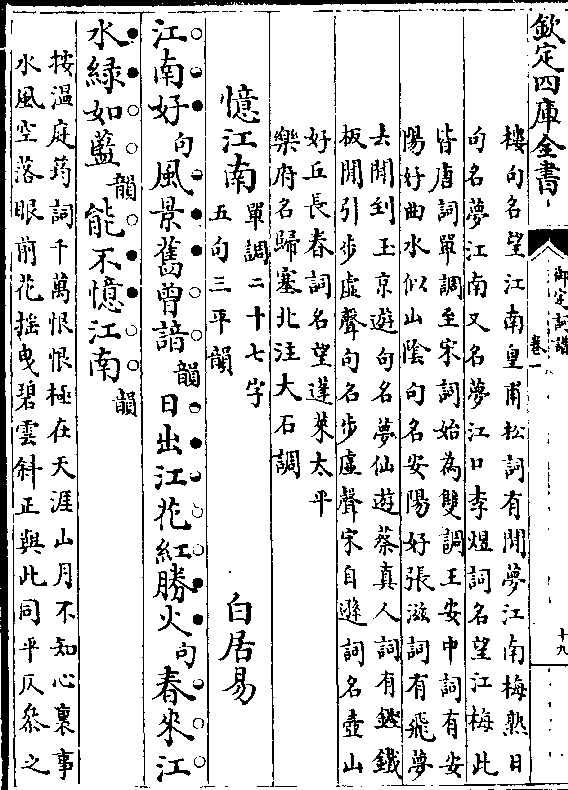 欽定四庫全書
御定詞譜
卷一
十九
樓句名望江南皇甫松詞有閒夢江南梅熟日
句名夢江南又名夢江口李煜詞名望江梅此
皆唐詞單調至宋詞始為雙調王安中詞有安
陽好曲水似山陰句名安陽好張滋詞有飛夢
去閒到玉京遊句名夢仙遊蔡真人詞有鏗鐵
板閒引步虛聲句名步虛聲宋自遜詞名壺山
好丘長春詞名望蓬萊太平
樂府名歸塞北注大石調
憶江南
單調二十七字
五句三平韻
白居易
江南好句風景舊曾諳韻日出江花紅勝火句春來江
水緑如藍韻能不憶江南韻
按温庭筠詞千萬恨恨極在天涯山月不知心裏事
水風空落眼前花揺曳碧雲斜正與此同平仄叅之